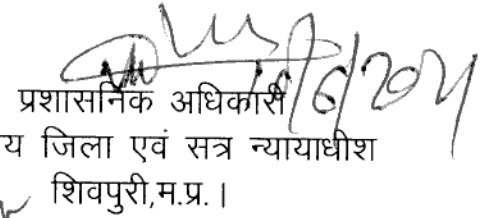 प्रशासनिक अधिकारी
य जिला एवं सत्र न्यायाधीश
शिवपुरी,म.प्र. ।